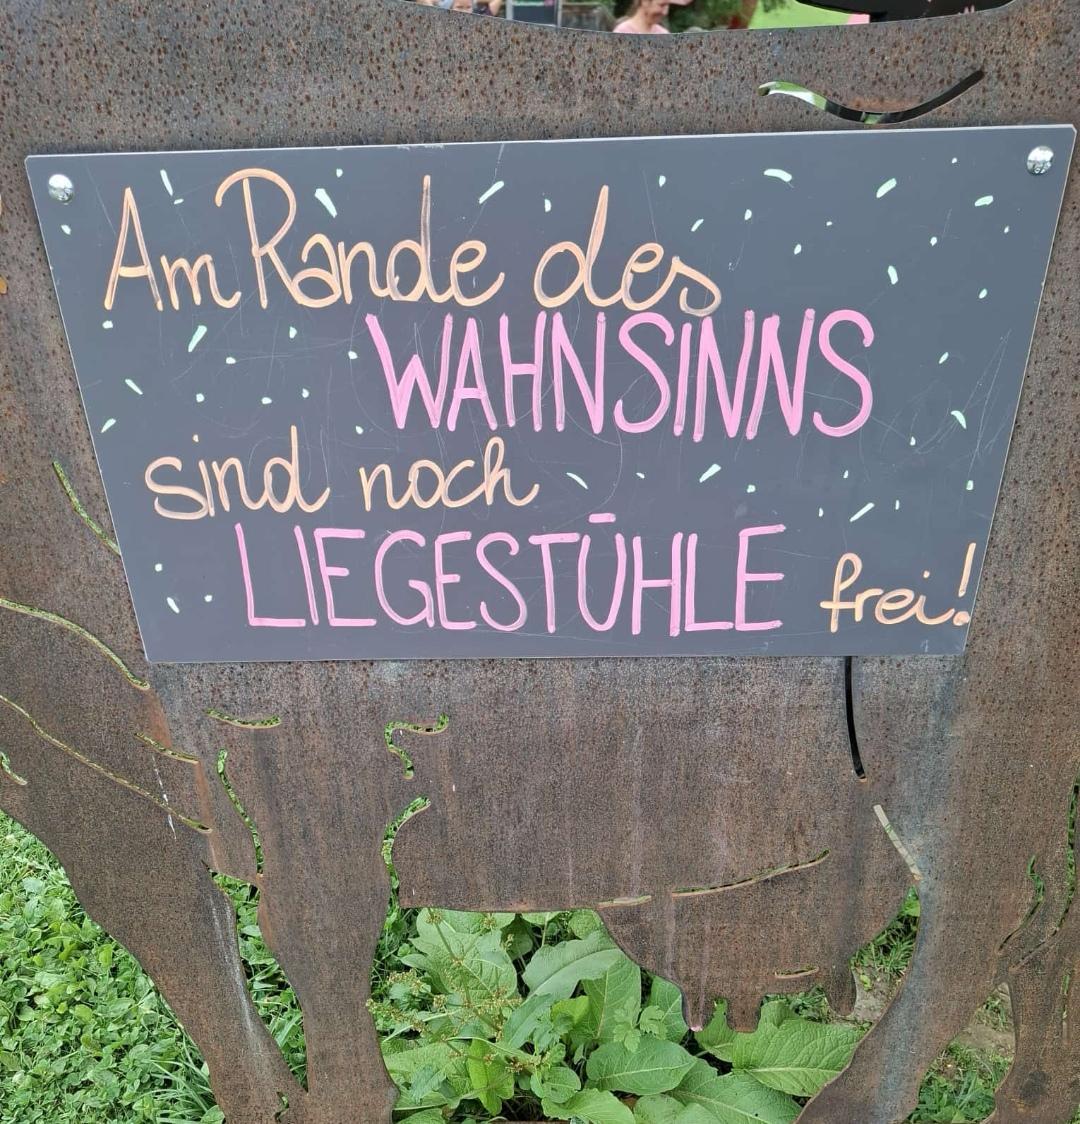 Am Rande des
WAHNSINNS
sind noch
LIEGESTÜHLE frei!